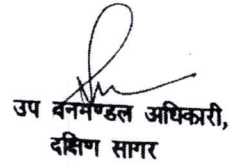 उप वनमण्डल अधिकारी,
दक्षिण सागर